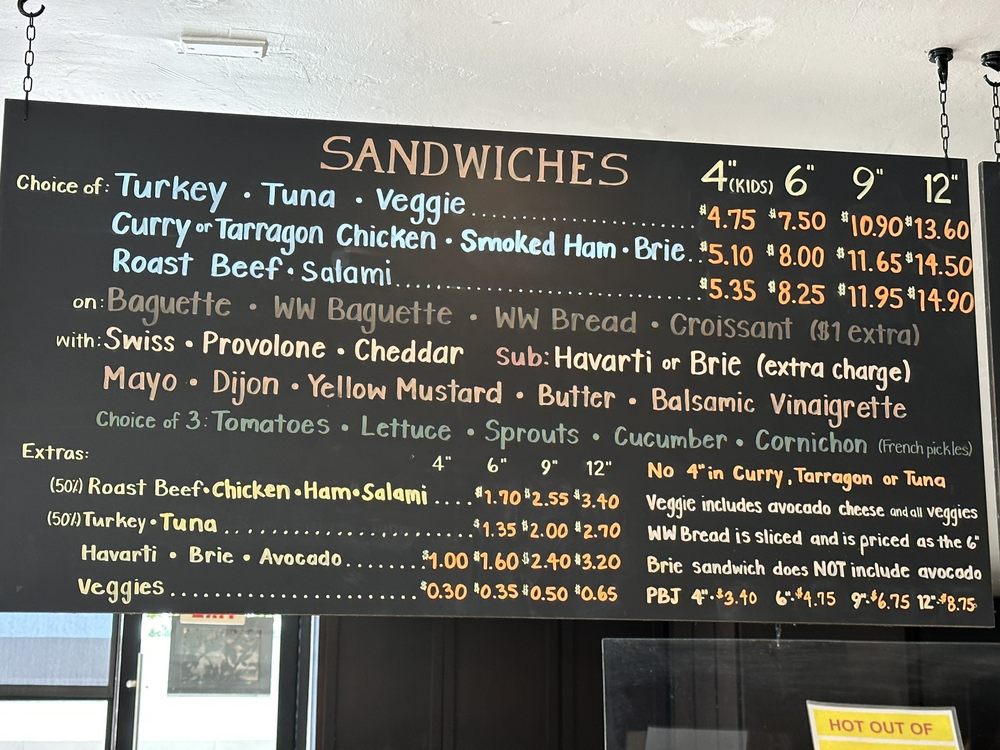 SANDWICHES 4"(KIDS) 6" 9" 12"
Choice of: Turkey • Tuna • Veggie........................ $4.75 $7.50 $10.90 $13.60
Curry or Tarragon Chicken • Smoked Ham • Brie.. $5.10 $8.00 $11.65 $14.50
Roast Beef • Salami.................................... $5.35 $8.25 $11.95 $14.90
on: Baguette • WW Baguette • WW Bread • Croissant ($1 extra)
with: Swiss • Provolone • Cheddar Sub: Havarti or Brie (extra charge)
Mayo • Dijon • Yellow Mustard • Butter • Balsamic Vinaigrette
Choice of 3: Tomatoes • Lettuce • Sprouts • Cucumber • Cornichon (French pickles)
Extras: 4" 6" 9" 12"
(50%) Roast Beef • Chicken • Ham • Salami .... $1.70 $2.55 $3.40
(50%) Turkey • Tuna .......................... $1.35 $2.00 $2.70
Havarti • Brie • Avocado........ $1.00 $1.60 $2.40 $3.20
Veggies.......................... $0.30 $0.35 $0.50 $0.65
No 4" in Curry, Tarragon or Tuna
Veggie includes avocado cheese and all veggies
WW Bread is sliced and is priced as the 6"
Brie sandwich does NOT include avocado
PBJ 4"-$3.40 6"-$4.75 9"-$6.75 12"-$8.75
EXIT
HOT OUT OF